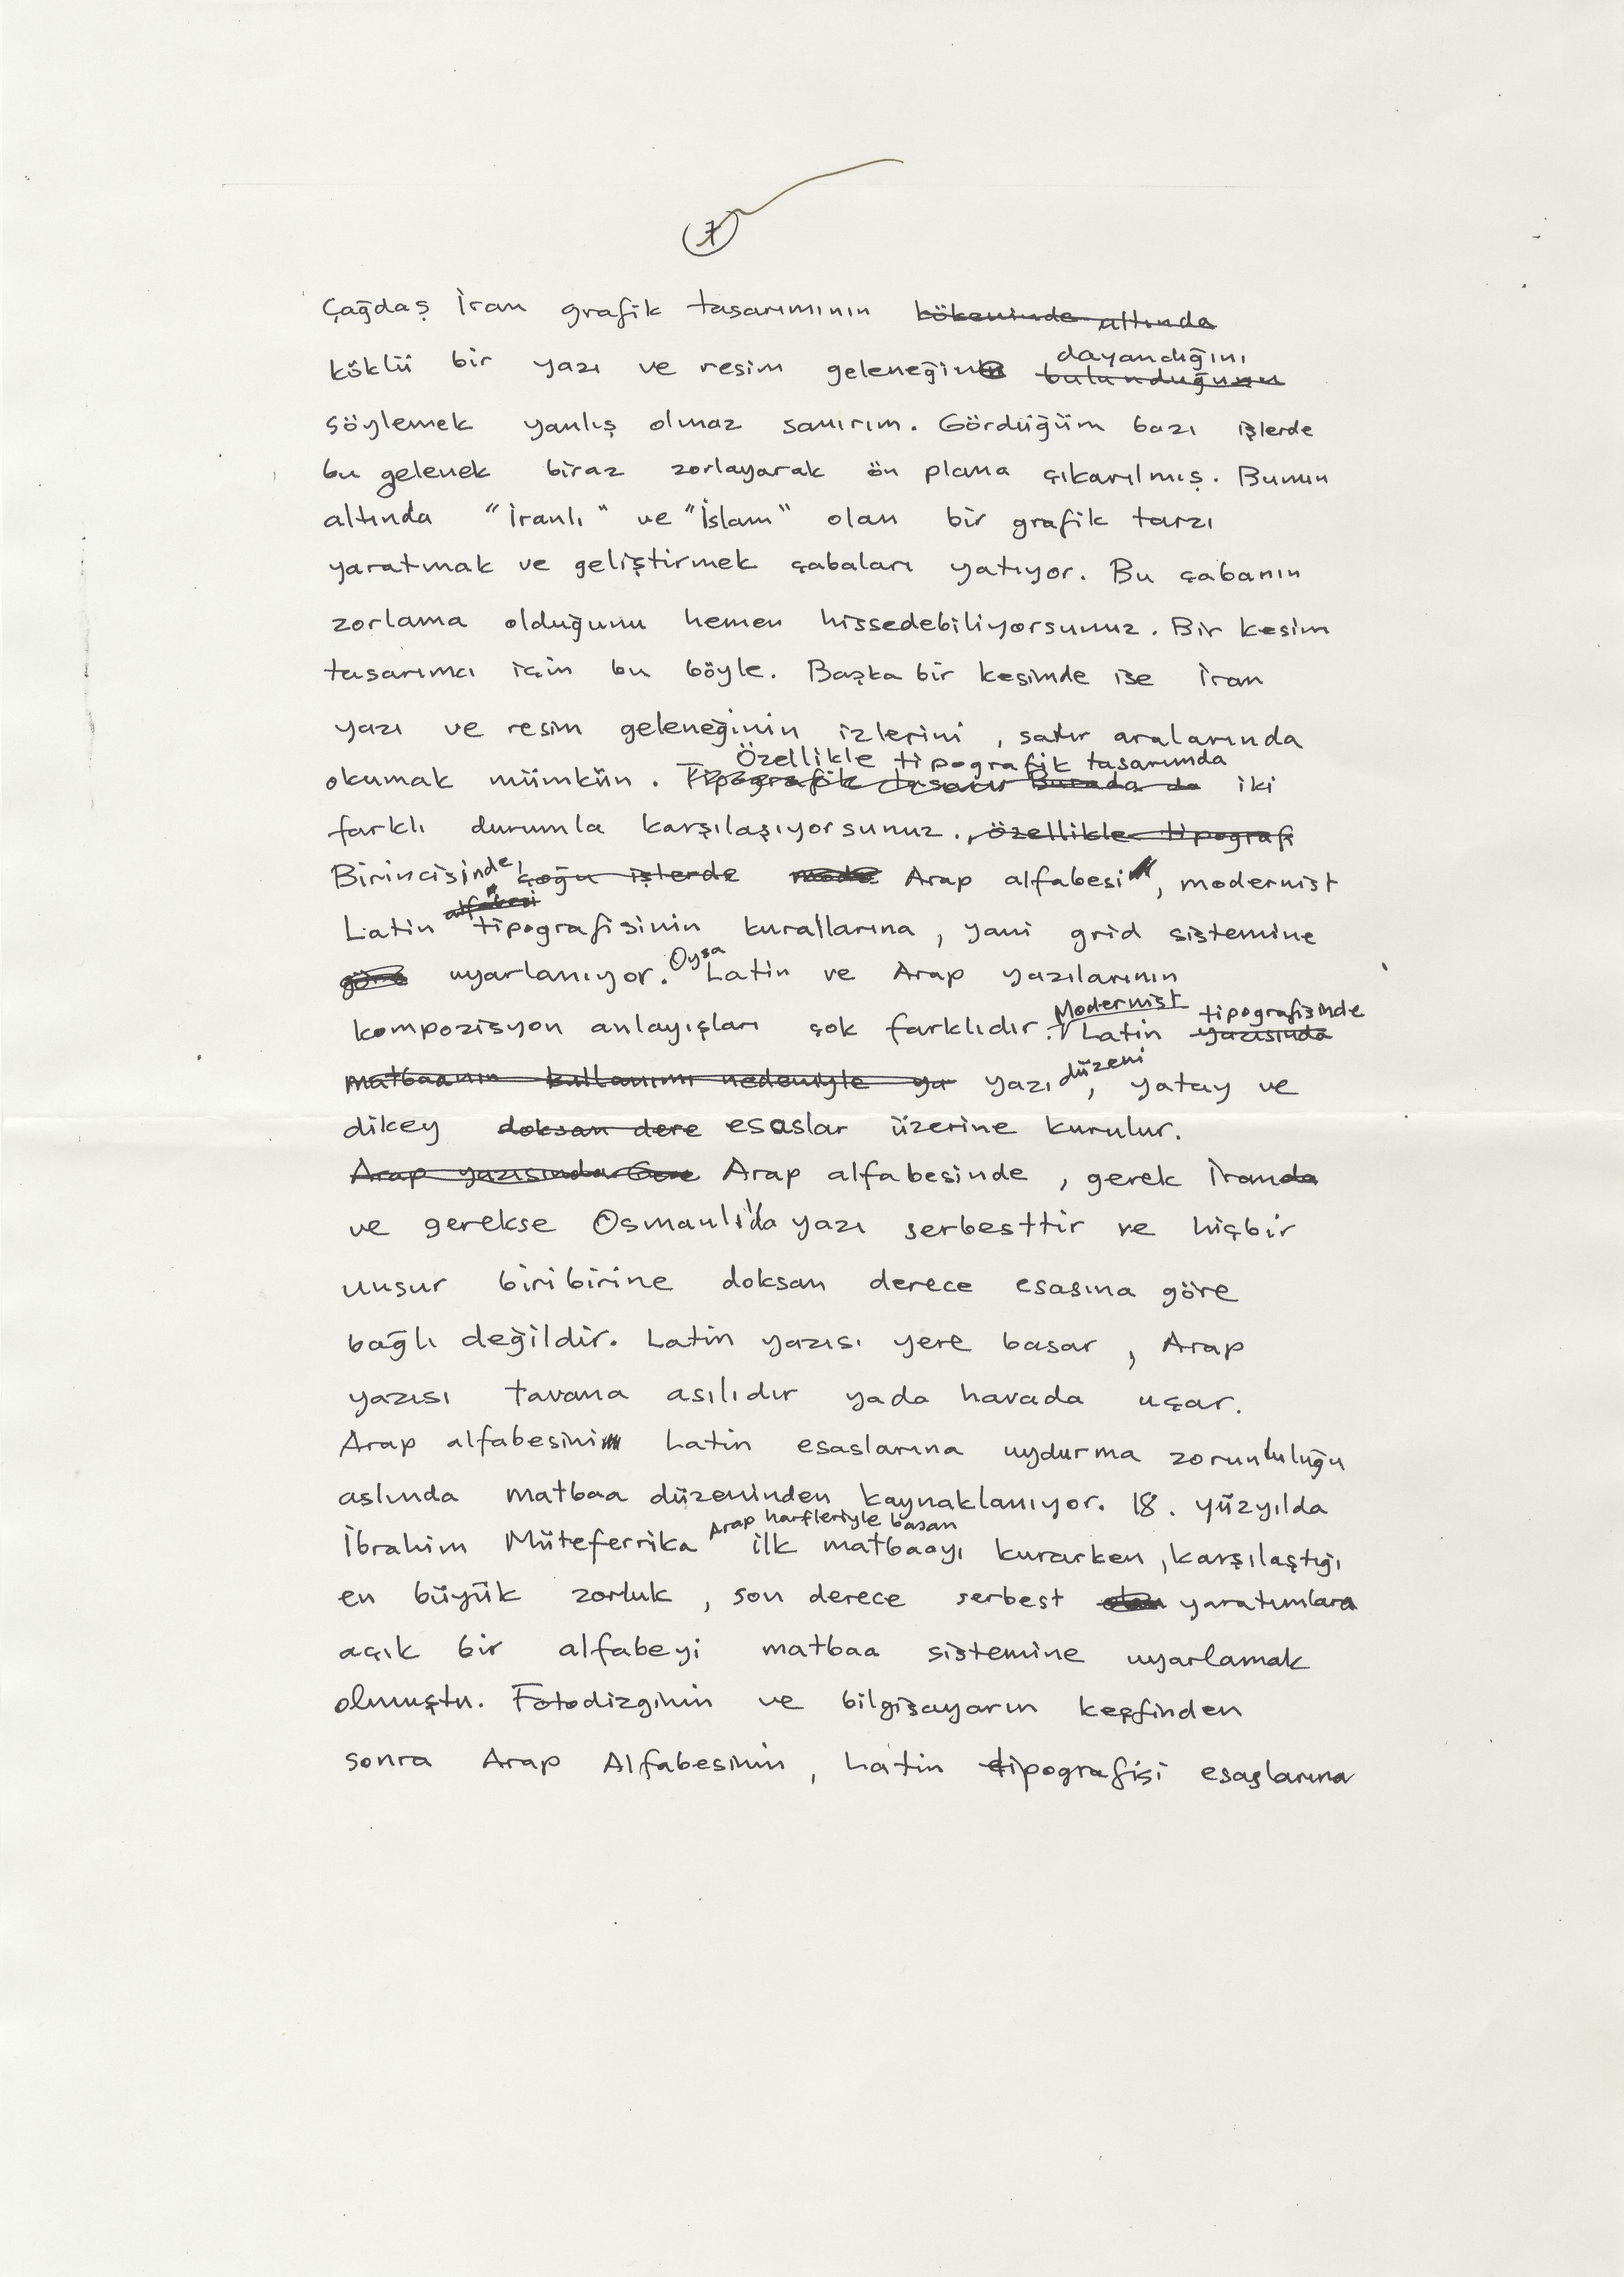 7
Çağdaş İran grafik tasarımının kökeninde altında
köklü bir yazı ve resim geleneğine dayandığını bulunduğunu
söylemek yanlış olmaz sanırım. Gördüğüm bazı işlerde
bu gelenek biraz zorlayarak ön plana çıkarılmış. Bunun
altında "İranlı" ve "İslam" olan bir grafik tarzı
yaratmak ve geliştirmek çabaları yatıyor. Bu çabanın
zorlama olduğunu hemen hissedebiliyorsunuz. Bir kesim
tasarımcı için bu böyle. Başka bir kesimde ise İran
yazı ve resim geleneğinin izlerini, satır aralarında
Özellikle tipografik tasarımda
okumak mümkün. Tipografik tasarım Burada da iki
farklı durumla karşılaşıyorsunuz., özellikle tipografi
Birincisinde, çoğu işlerde Arap alfabesi, modernist
alfabesi
Latin tipografisinin kurallarına, yani grid sistemine
göre uyarlanıyor. Oysa Latin ve Arap yazılarının
Modernist tipografisinde
kompozisyon anlayışları çok farklıdır. Latin yazısında
matbaanın kullanımı nedeniyle ya yazı düzeni, yatay ve
dikey doksan dere esaslar üzerine kurulur.
Arap yazısında Gere Arap alfabesinde, gerek İranda
ve gerekse Osmanlı'da yazı serbesttir ve hiçbir
unsur biribirine doksan derece esasına göre
bağlı değildir. Latin yazısı yere basar, Arap
yazısı tavana asılıdır yada havada uçar.
Arap alfabesini Latin esaslarına uydurma zorunluluğu
aslında matbaa düzeninden kaynaklanıyor. 18. yüzyılda
Arap harfleriyle basan
İbrahim Müteferrika ilk matbaayı kurarken, karşılaştığı
en büyük zorluk, son derece serbest olan yaratımlara
açık bir alfabeyi matbaa sistemine uyarlamak
olmuştu. Fotodizginin ve bilgisayarın keşfinden
sonra Arap Alfabesinin, Latin tipografisi esaslarına